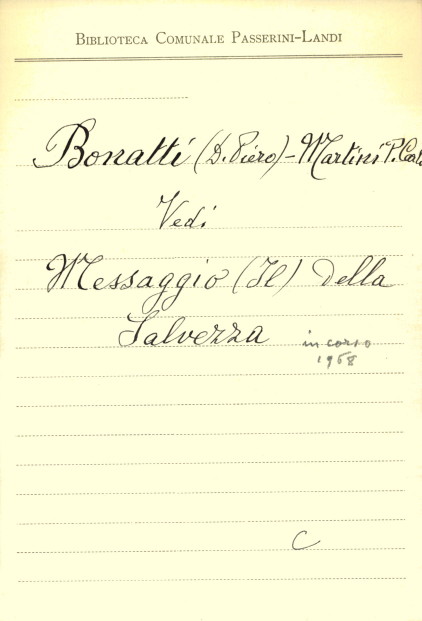 BIBLIOTECA COMUNALE PASSERINI-LANDI
Bonatti (D. Piero) - Martini P.
Vedi
Messaggio (Il) della
Salvezza in corso
1968
C